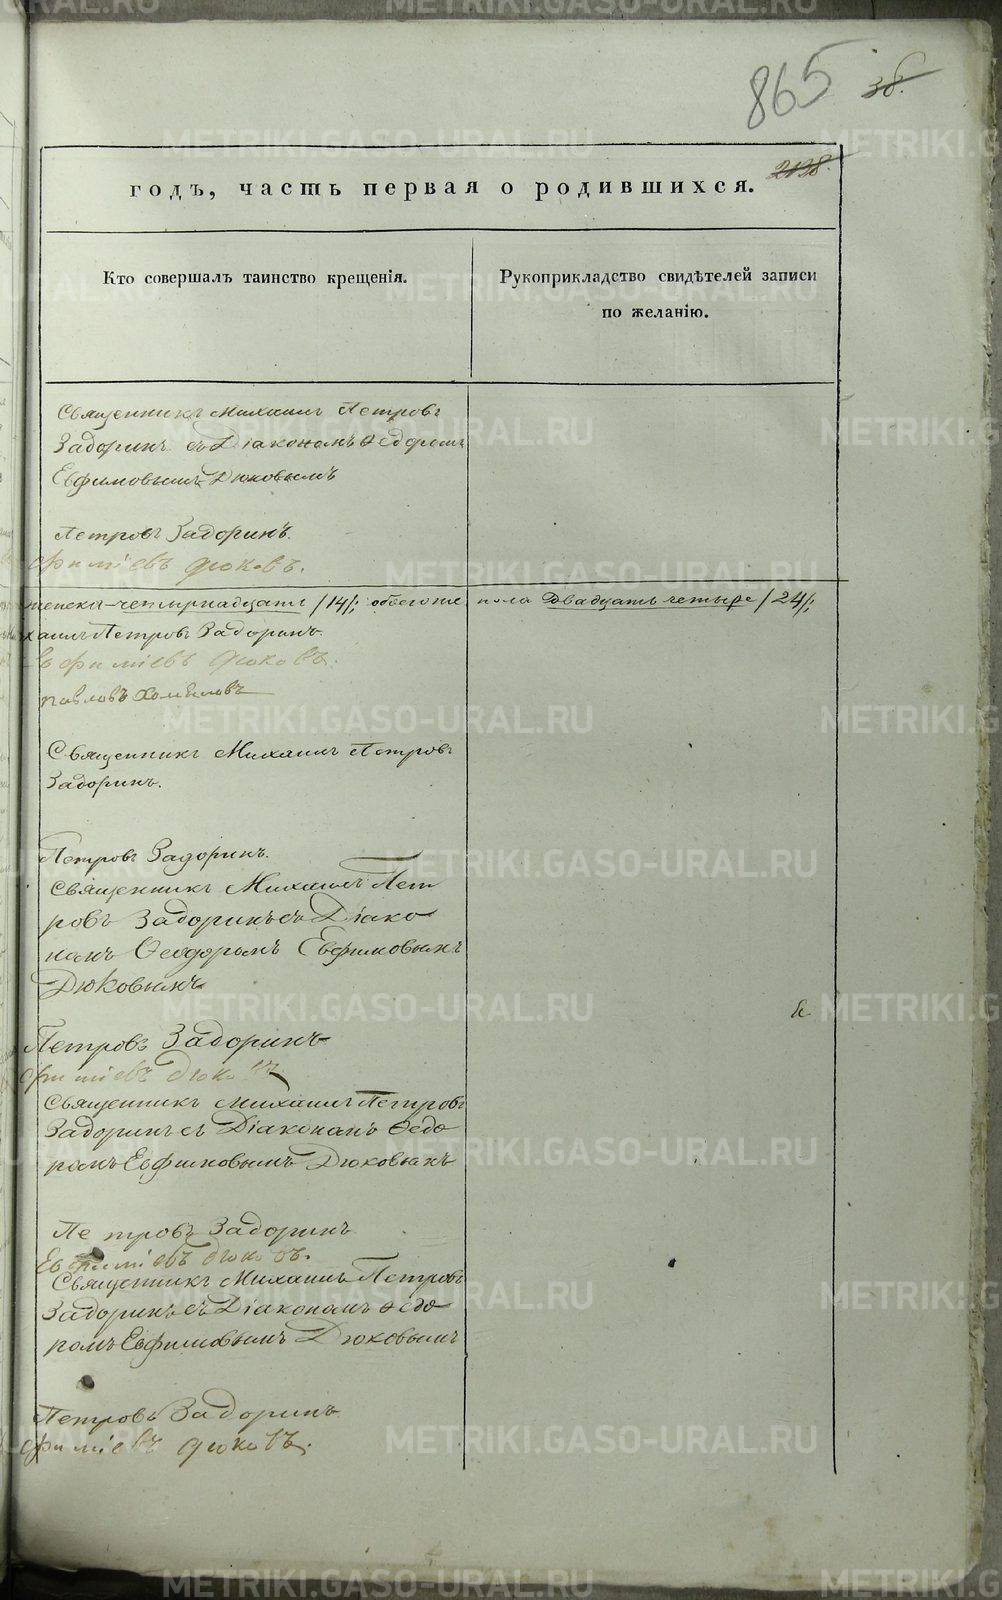 865 38.
2138.
годъ, часть первая о родившихся.
Кто совершалъ таинство крещенія.
Рукоприкладство свидѣтелей записи
по желанію.
Священникъ Михаилъ Петровъ
Задоринъ съ Діакономъ Ѳедоромъ
Евфимовымъ Дюковымъ
Петровъ Задоринъ.
фиміевъ Дюковъ.
женска четырнадцать /14/; обоего же пола двадцать четыре /24/;
хаилъ Петровъ Задоринъ
Евфиміевъ Дюковъ.
Павловъ Хомяковъ
Священникъ Михаилъ Петровъ
Задоринъ.
Петровъ Задоринъ.
Священникъ Михаилъ Пет
ровъ Задоринъ съ Діако
номъ Ѳеодоромъ Евфимовымъ
Дюковымъ
Петровъ Задоринъ
фиміевъ Дюковъ
Священникъ Михаилъ Петровъ
Задоринъ съ Діакономъ Ѳедо
ромъ Евфимовымъ Дюковымъ
Петровъ Задоринъ
Евфиміевъ Дюковъ.
Священникъ Михаилъ Петровъ
Задоринъ съ Діакономъ Ѳедо
ромъ Евфимовымъ Дюковымъ
Петровъ Задоринъ
фиміевъ Дюковъ.
METRIKI.GASO-URAL.RU